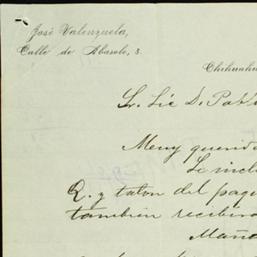 José Valenzuela,
Calle de Abasolo, 3.
Chihuahu
Sr. Lic D. Pabl
Muy querid
Le inclu
Q. y talon del paqu
tambien recibira
Maña